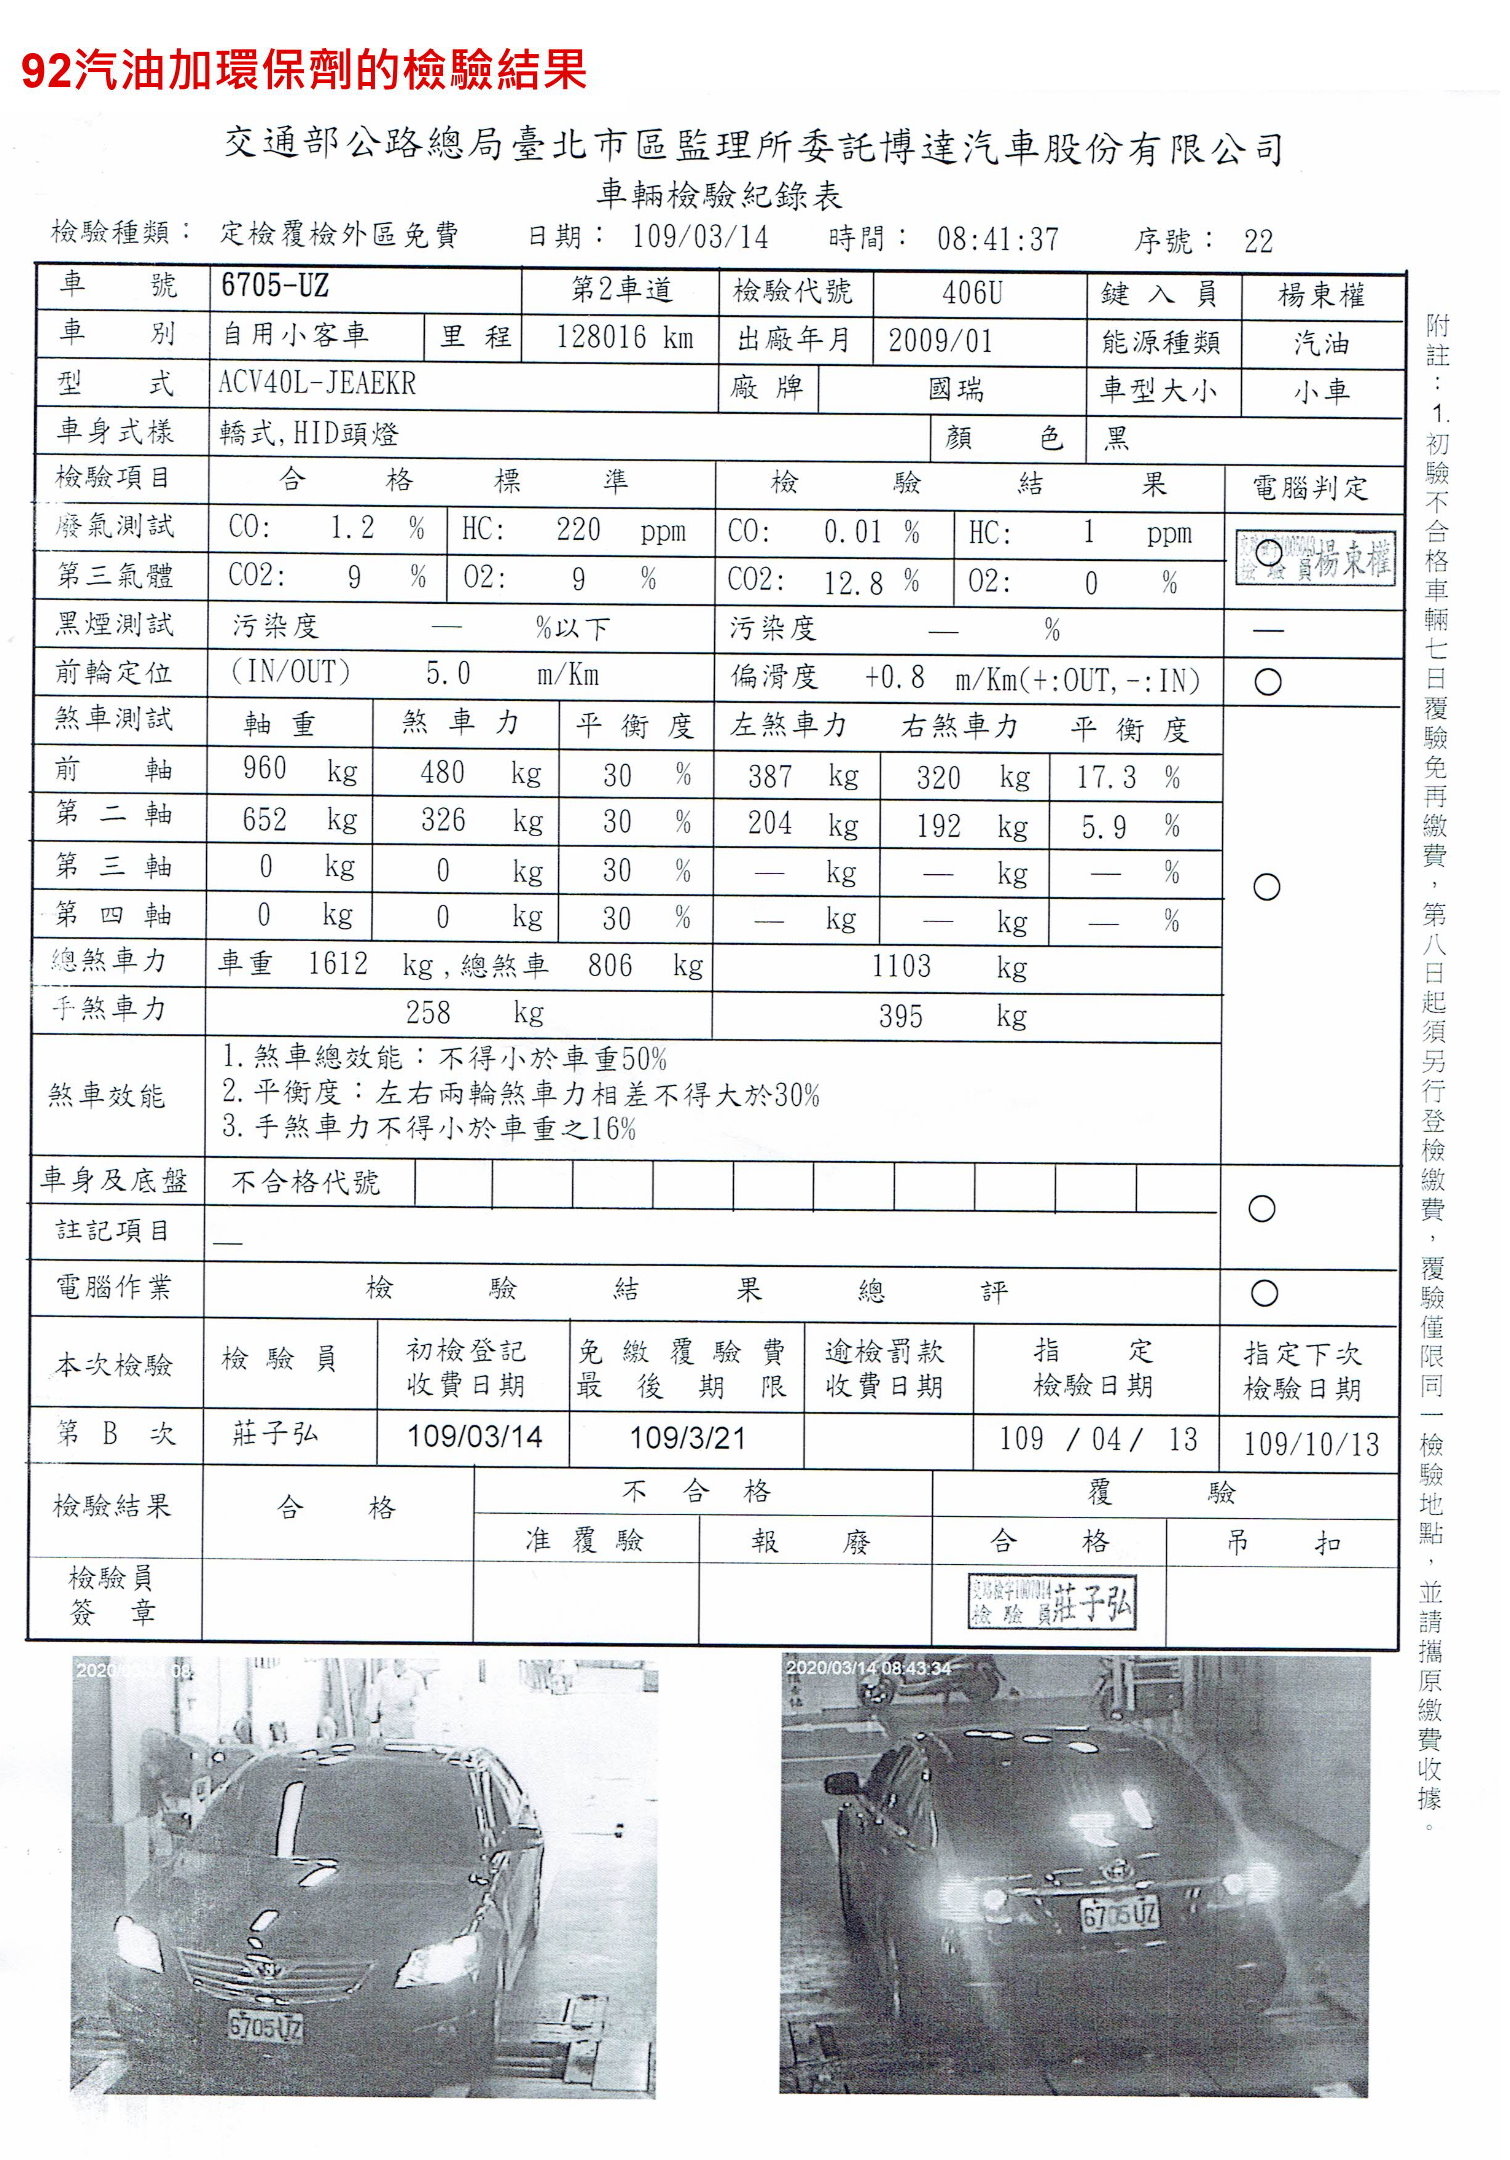 92汽油加環保劑的檢驗結果
交通部公路總局臺北市區監理所委託博達汽車股份有限公司
車輛檢驗紀錄表
檢驗種類： 定檢覆檢外區免費 日期： 109/03/14 時間： 08:41:37 序號： 22
車 號 6705-UZ 第2車道 檢驗代號 406U 鍵入員 楊東權
車 別 自用小客車 里程 128016 km 出廠年月 2009/01 能源種類 汽油
型 式 ACV40L-JEAEKR 廠牌 國瑞 車型大小 小車
車身式樣 轎式,HID頭燈 顏 色 黑
檢驗項目 合 格 標 準 檢 驗 結 果 電腦判定
廢氣測試 CO: 1.2 % HC: 220 ppm CO: 0.01 % HC: 1 ppm ○
檢驗員楊東權
第三氣體 CO2: 9 % O2: 9 % CO2: 12.8 % O2: 0 %
黑煙測試 污染度 — %以下 污染度 — % —
前輪定位 (IN/OUT) 5.0 m/Km 偏滑度 +0.8 m/Km(+:OUT,-:IN) ○
煞車測試 軸重 煞車力 平衡度 左煞車力 右煞車力 平衡度
前 軸 960 kg 480 kg 30 % 387 kg 320 kg 17.3 %
第二軸 652 kg 326 kg 30 % 204 kg 192 kg 5.9 %
第三軸 0 kg 0 kg 30 % — kg — kg — % ○
第四軸 0 kg 0 kg 30 % — kg — kg — %
總煞車力 車重 1612 kg,總煞車 806 kg 1103 kg
手煞車力 258 kg 395 kg
煞車效能 1.煞車總效能：不得小於車重50%
2.平衡度：左右兩輪煞車力相差不得大於30%
3.手煞車力不得小於車重之16%
車身及底盤 不合格代號 ○
註記項目 —
電腦作業 檢 驗 結 果 總 評 ○
本次檢驗 檢驗員 初檢登記收費日期 免繳覆驗費最後期限 逾檢罰款收費日期 指定檢驗日期 指定下次檢驗日期
第 B 次 莊子弘 109/03/14 109/3/21 109 / 04 / 13 109/10/13
檢驗結果 合 格 不 合 格 覆 驗
准覆驗 報 廢 合 格 吊 扣
檢驗員
簽 章
檢驗員莊子弘
附註：1.初驗不合格車輛七日覆驗免再繳費，第八日起須另行登檢繳費，覆驗僅限同一檢驗地點，並請攜原繳費收據。
2020/03/14 08:43:34
6705 UZ
6705 UZ